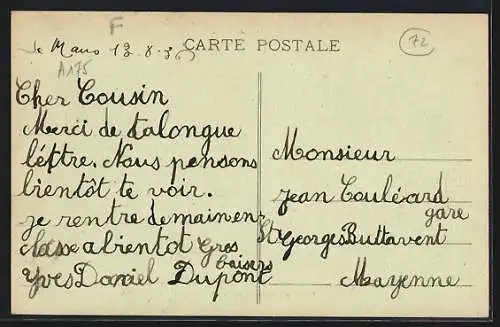 F
Le Mans 13-8-3
CARTE POSTALE
72
A175
Cher Cousin
Merci de talongue
léttre. Nous pensons
bientôt te voir.
je rentre demain en
classe abientot Gros
baisers
Yves Daniel Dupont
Monsieur
jean Couléard
gare
St Georges Buttavent
Mayenne